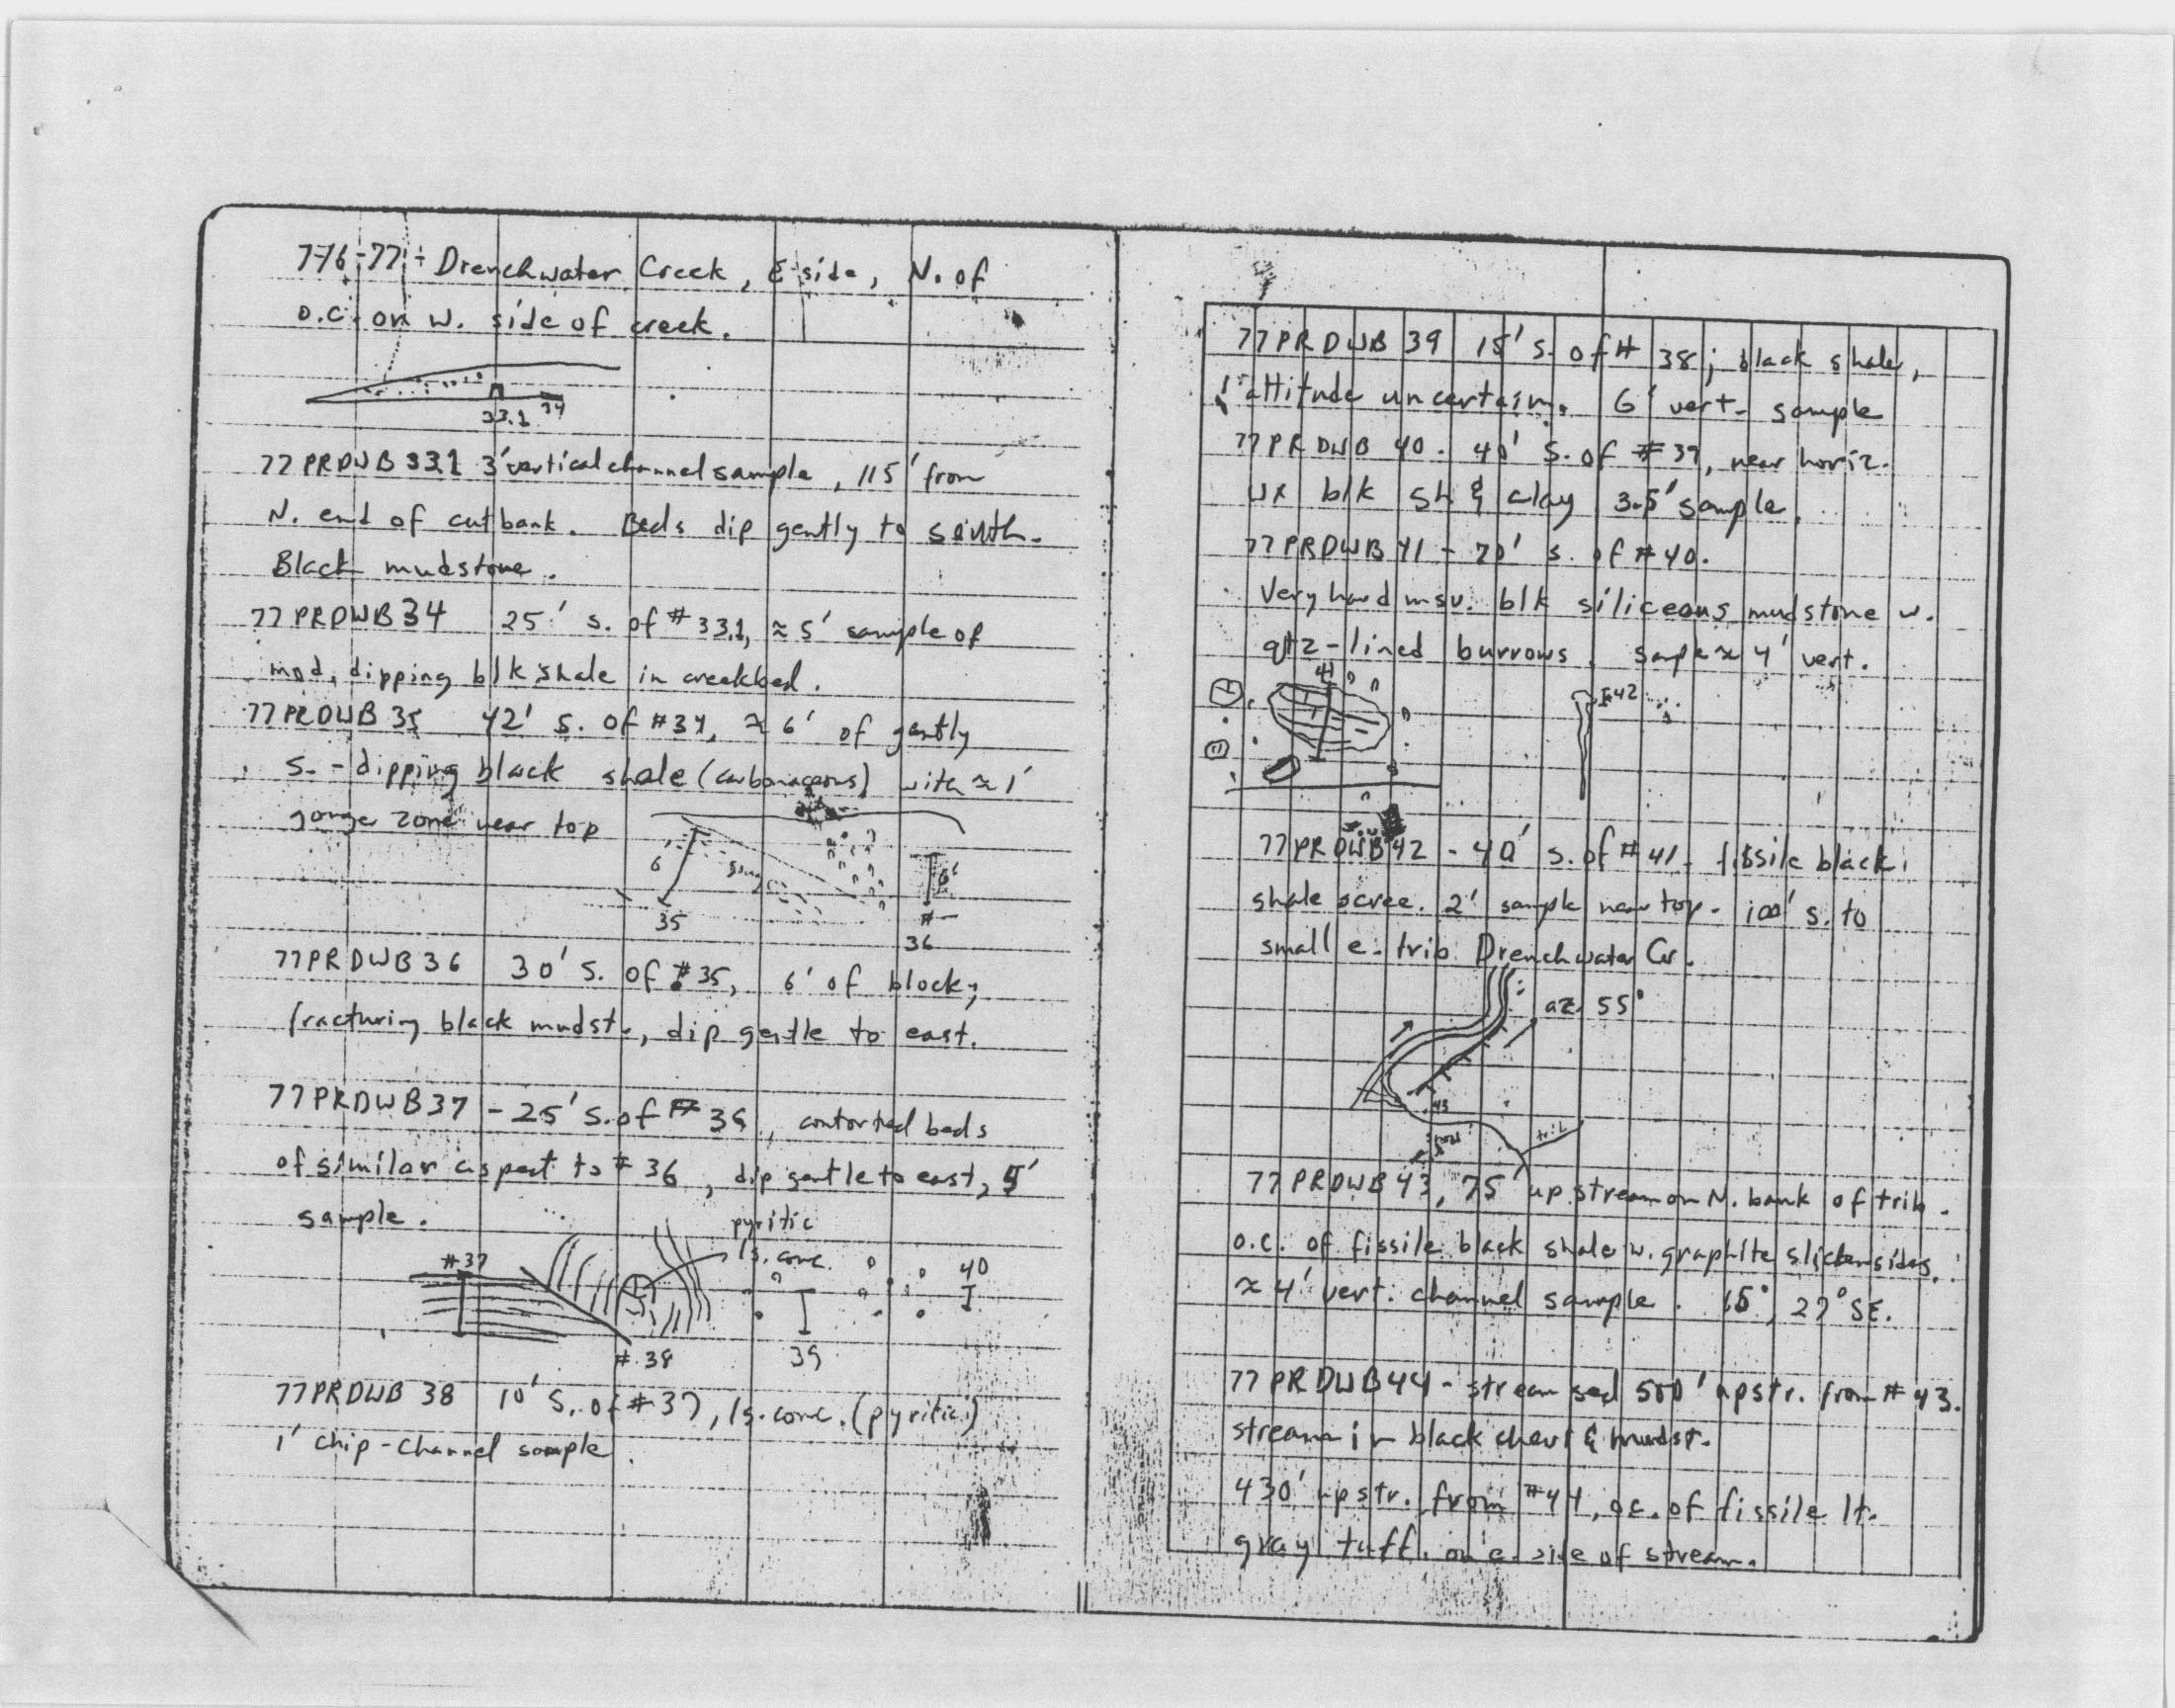 7-16-77 - Drenchwater Creek, E side, N. of
o.c. on w. side of creek.
33.1 34
77PRDWB 33.1 3' vertical channel sample, 115' from
N. end of cutbank. Beds dip gently to south.
Black mudstone.
77PRDWB34 25' s. of #33.1, ≈ 5' sample of
mod. dipping blk shale in creekbed.
77PRDWB 35 42' s. of #34, ≈ 6' of gently
S.-dipping black shale (carbonaceous) with ≈ 1'
gouge zone near top
6' gouge 6'
35 #
36
77PRDWB36 30' S. of #35, 6' of blocky
fracturing black mudst., dip gentle to east.
77PRDWB37 - 25' S. of #36, contorted beds
of similar aspect to #36, dip gentle to east, 5'
sample.
pyritic
ls. conc.
#37 40
#38 39
77PRDWB 38 10' S. of #37, ls. conc. (pyritic)
1' chip-channel sample.
77PRDWB 39 15' S. of # 38; black shale,
attitude uncertain. 6' vert. sample
77PRDWB 40. 40' S. of #39, near horiz.
wx blk sh & clay 3.5' sample.
77PRDWB 41 - 70' s. of #40.
Very hard msv. blk siliceous mudstone w.
qtz-lined burrows. Sample ≈ 4' vert.
41 42
77PRDWB42 - 40' s. of #41. fissile black
shale scree. 2' sample near top. 100' s. to
small e. trib Drenchwater Cr.
az. 55°
43
trib
77PRDWB43, 75' upstream on N. bank of trib.
o.c. of fissile black shale w. graphite slickensides.
≈ 4' vert. channel sample. 15°, 27° SE.
77PRDWB44 - stream sed 500' upstr. from #43.
stream in black chert & mudst.
430' upstr. from #44, o.c. of fissile lt.
gray tuff. on e. side of stream.